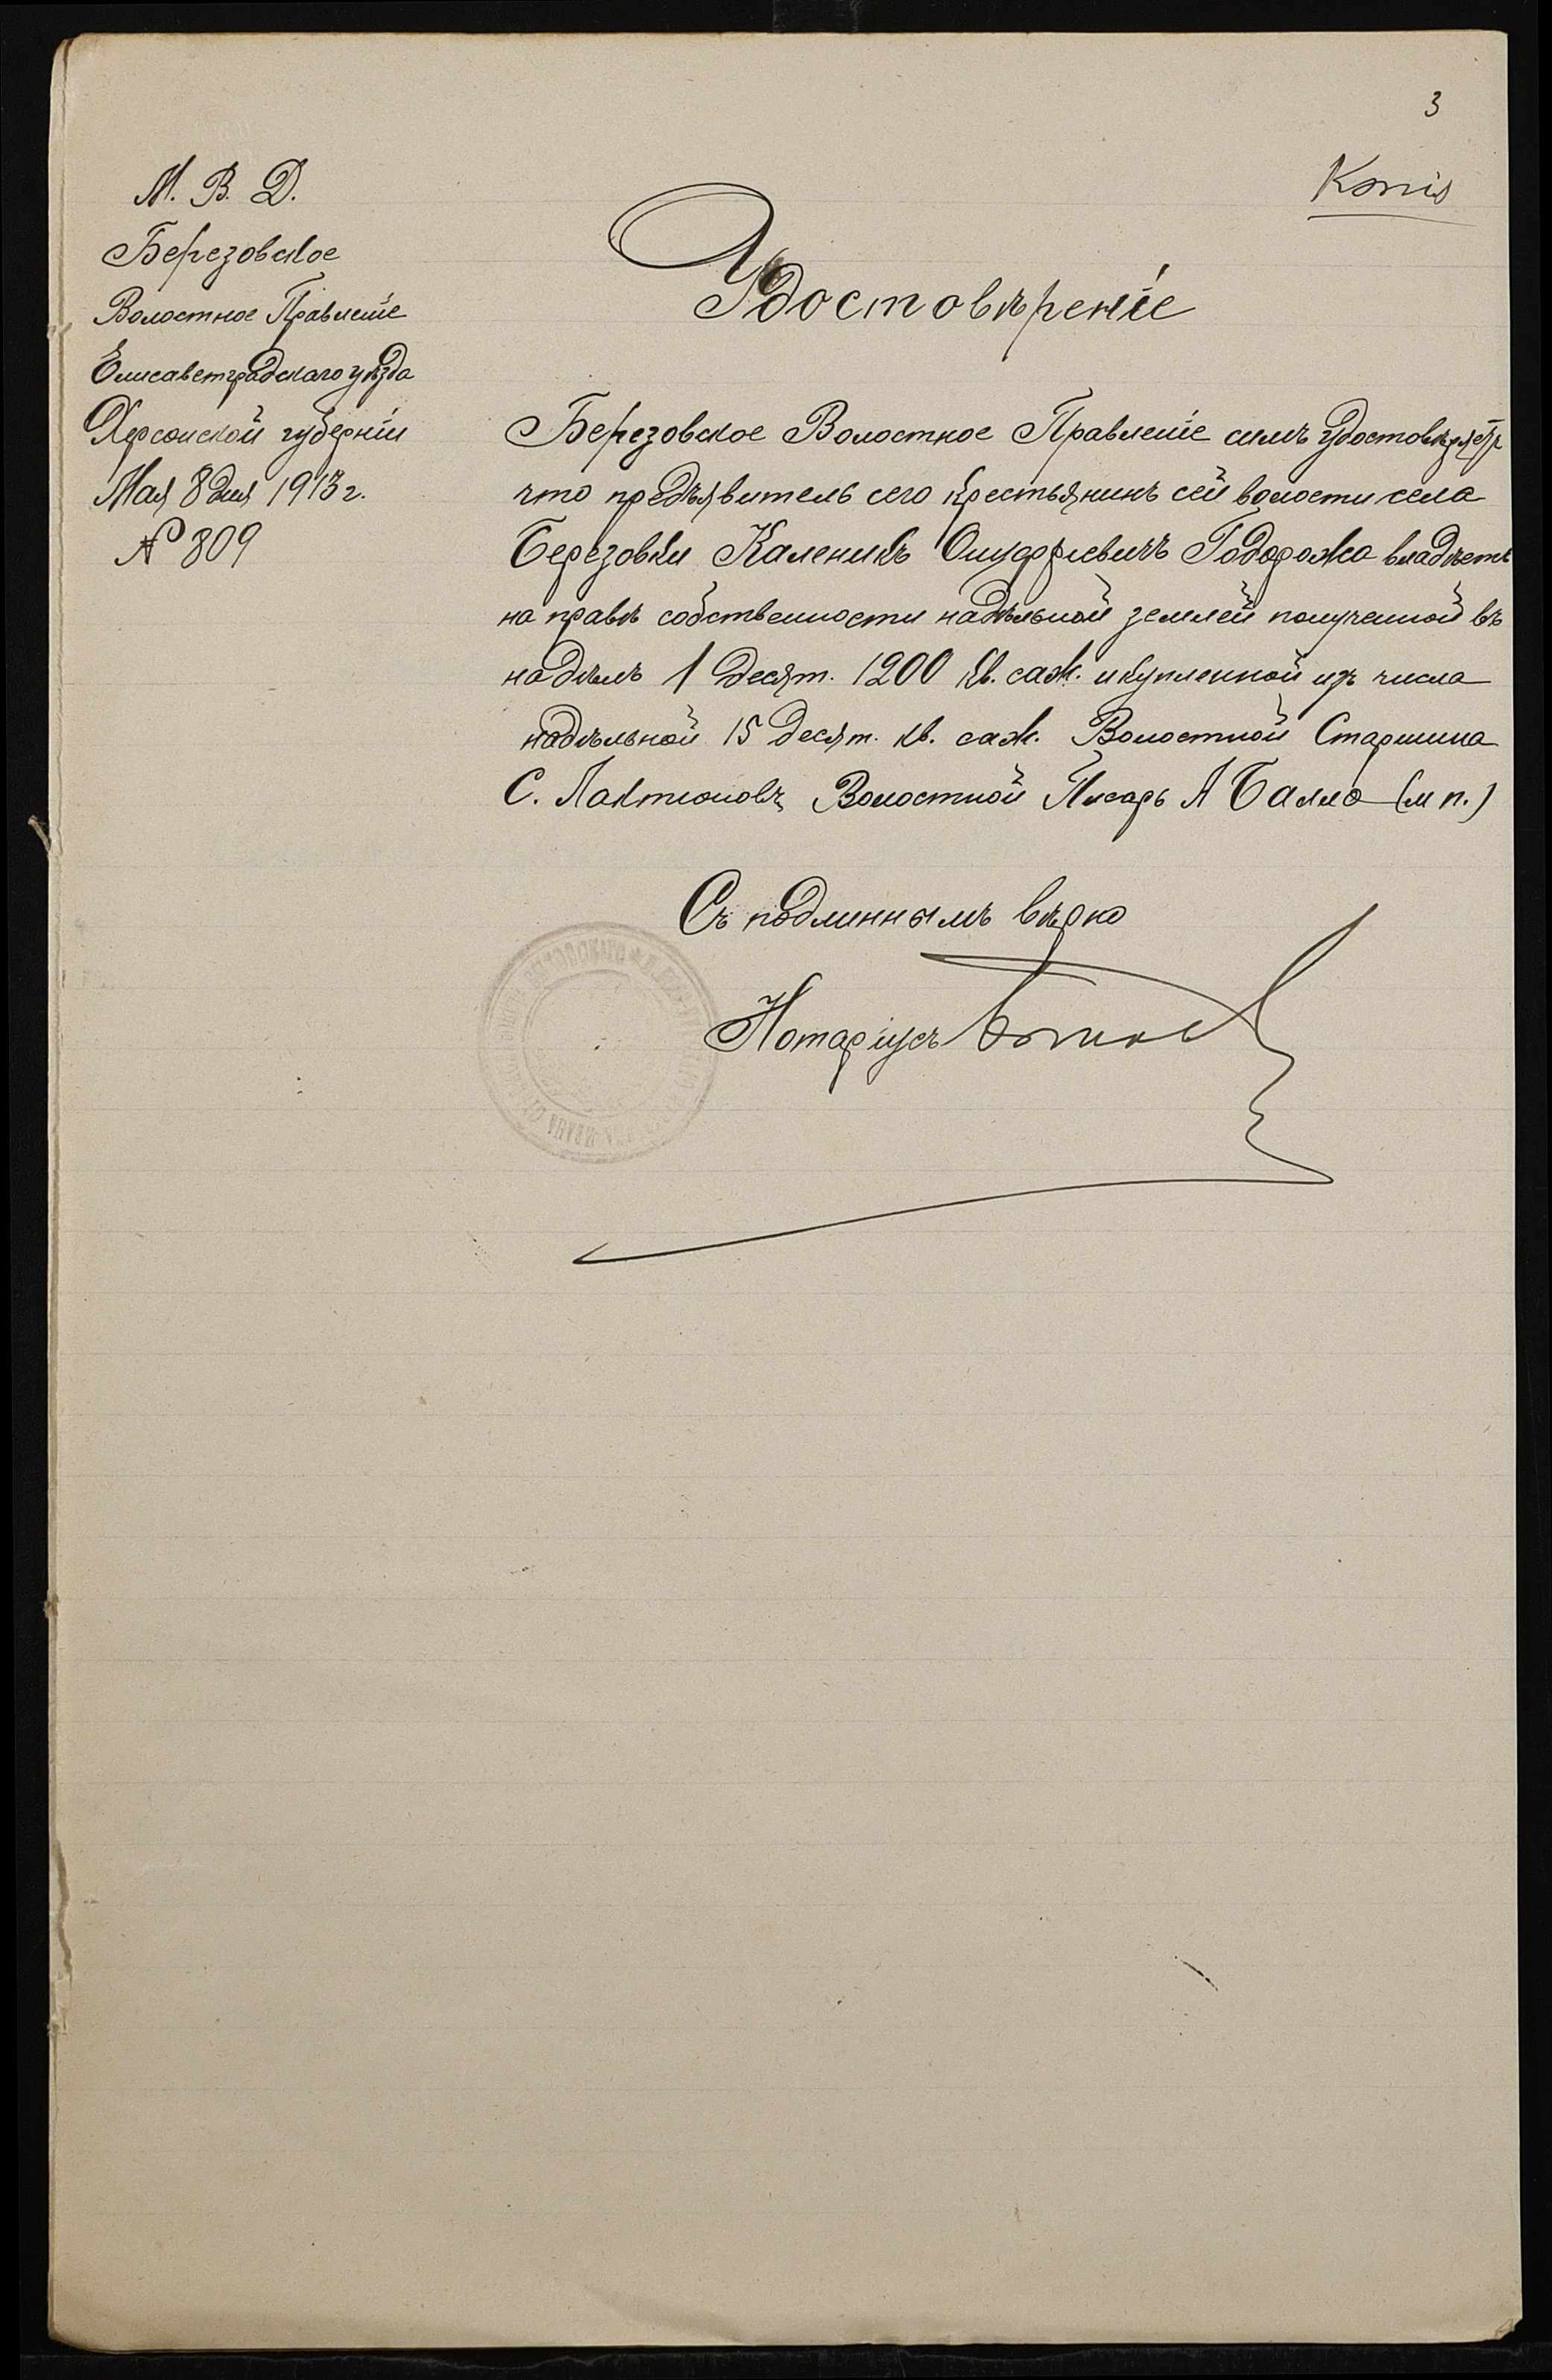 3
Копія
М. В. Д.
Березовское
Волостное Правленіе
Елисаветградскаго уѣзда
Херсонской губерніи
Мая 8 дня 1913 г.
№ 809
Удостовѣреніе
Березовское Волостное Правленіе симъ удостовѣряетъ
что предъявитель сего крестьянинъ сей волости села
Березовки Каленикъ Онуфріевичъ владѣетъ
на правѣ собственности надѣльной землей полученной въ
надѣлъ 1 десят. 1200 кв. саж. и купленной изъ числа
надѣльной 15 десят. кв. саж. Волостной Старшина
С. Лактіоновъ, Волостной Писарь А Балло (м п.)
Съ подлиннымъ вѣрно
Нотаріусъ